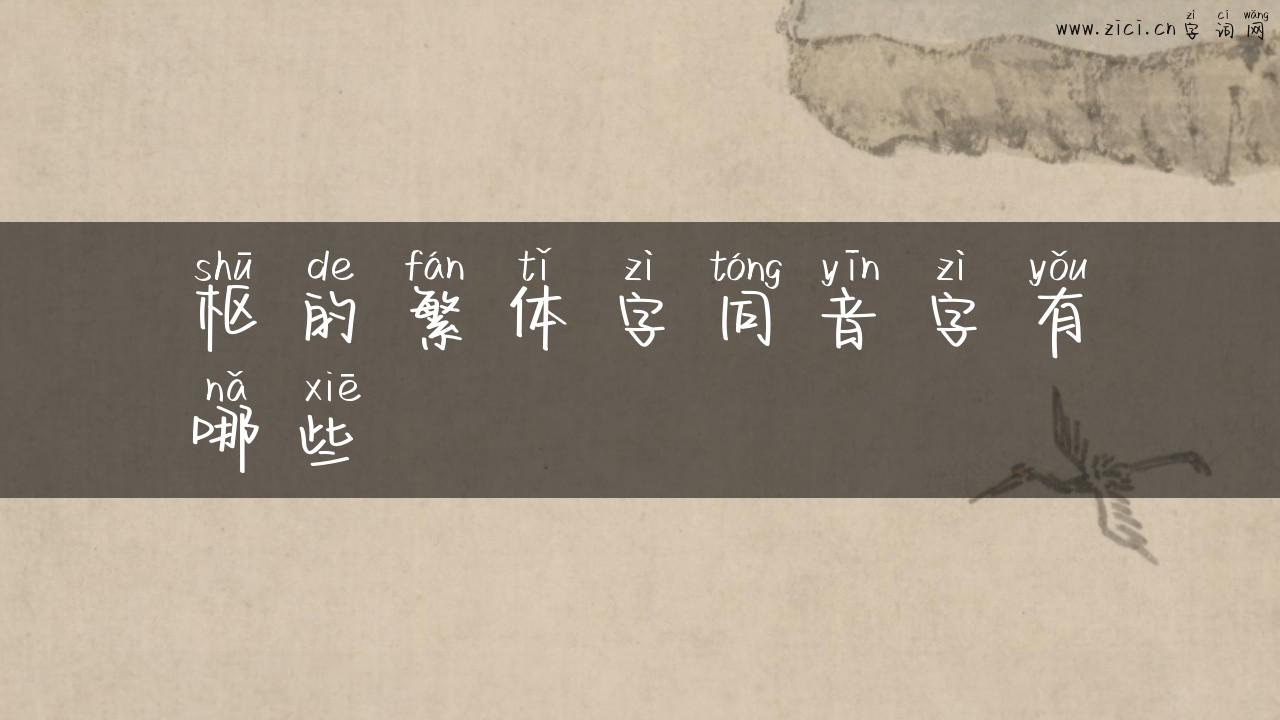 zì cí wǎng
www.zici.cn字词网
shū de fán tǐ zì tóng yīn zì yǒu
枢的繁体字同音字有
nǎ xiē
哪些